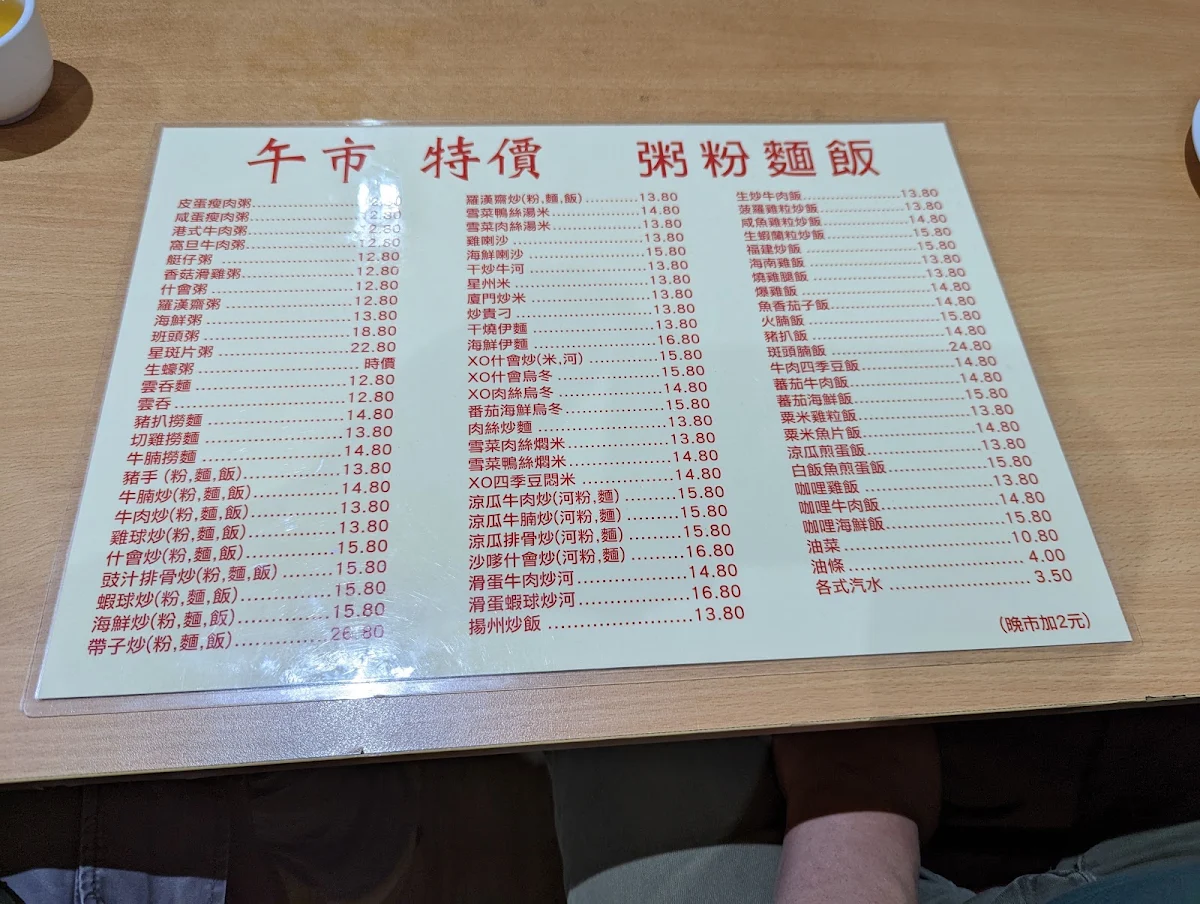 午市 特價 粥粉麵飯
皮蛋瘦肉粥
咸蛋瘦肉粥
港式牛肉粥
窩旦牛肉粥
艇仔粥 12.80
香菇滑雞粥 12.80
什會粥 12.80
羅漢齋粥 12.80
海鮮粥 13.80
班頭粥 18.80
星斑片粥 22.80
生蠔粥 時價
雲吞麵 12.80
雲吞 12.80
豬扒撈麵 14.80
切雞撈麵 13.80
牛腩撈麵 14.80
豬手 (粉,麵,飯) 13.80
牛腩炒(粉,麵,飯) 14.80
牛肉炒(粉,麵,飯) 13.80
雞球炒(粉,麵,飯) 13.80
什會炒(粉,麵,飯) 15.80
豉汁排骨炒(粉,麵,飯) 15.80
蝦球炒(粉,麵,飯) 15.80
海鮮炒(粉,麵,飯) 15.80
帶子炒(粉,麵,飯) 26.80
羅漢齋炒(粉,麵,飯) 13.80
雪菜鴨絲湯米 14.80
雪菜肉絲湯米 13.80
雞喇沙 13.80
海鮮喇沙 15.80
干炒牛河 13.80
星州米 13.80
廈門炒米 13.80
炒貴刁 13.80
干燒伊麵 13.80
海鮮伊麵 16.80
XO什會炒(米,河) 15.80
XO什會烏冬 15.80
XO肉絲烏冬 14.80
番茄海鮮烏冬 15.80
肉絲炒麵 13.80
雪菜肉絲燜米 13.80
雪菜鴨絲燜米 14.80
XO四季豆悶米 14.80
涼瓜牛肉炒(河粉,麵) 15.80
涼瓜牛腩炒(河粉,麵) 15.80
涼瓜排骨炒(河粉,麵) 15.80
沙嗲什會炒(河粉,麵) 16.80
滑蛋牛肉炒河 14.80
滑蛋蝦球炒河 16.80
揚州炒飯 13.80
生炒牛肉飯 13.80
菠蘿雞粒炒飯 13.80
咸魚雞粒炒飯 14.80
生蝦蘭粒炒飯 15.80
福建炒飯 15.80
海南雞飯 13.80
燒雞腿飯 13.80
爆雞飯 14.80
魚香茄子飯 14.80
火腩飯 15.80
豬扒飯 14.80
斑頭腩飯 24.80
牛肉四季豆飯 14.80
蕃茄牛肉飯 14.80
蕃茄海鮮飯 15.80
粟米雞粒飯 13.80
粟米魚片飯 14.80
涼瓜煎蛋飯 13.80
白飯魚煎蛋飯 15.80
咖哩雞飯 13.80
咖哩牛肉飯 14.80
咖哩海鮮飯 15.80
油菜 10.80
油條 4.00
各式汽水 3.50
(晚市加2元)